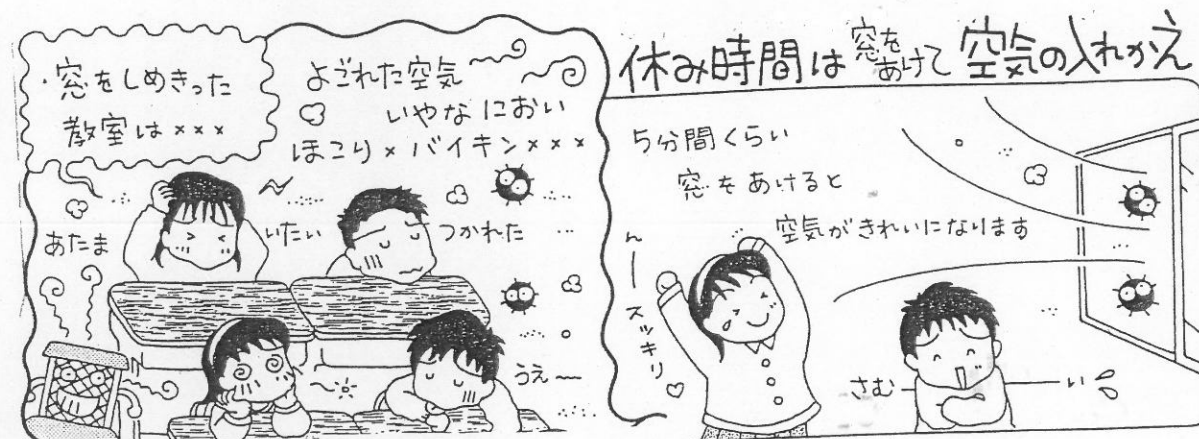 ・窓をしめきった
教室は×××
よごれた空気
いやなにおい
ほこり×バイキン×××
あたま
いたい
つかれた
うえ〜
休み時間は窓をあけて空気の入れかえ
5分間くらい
窓をあけると
空気がきれいになります
んースッキリ♡
さむーい